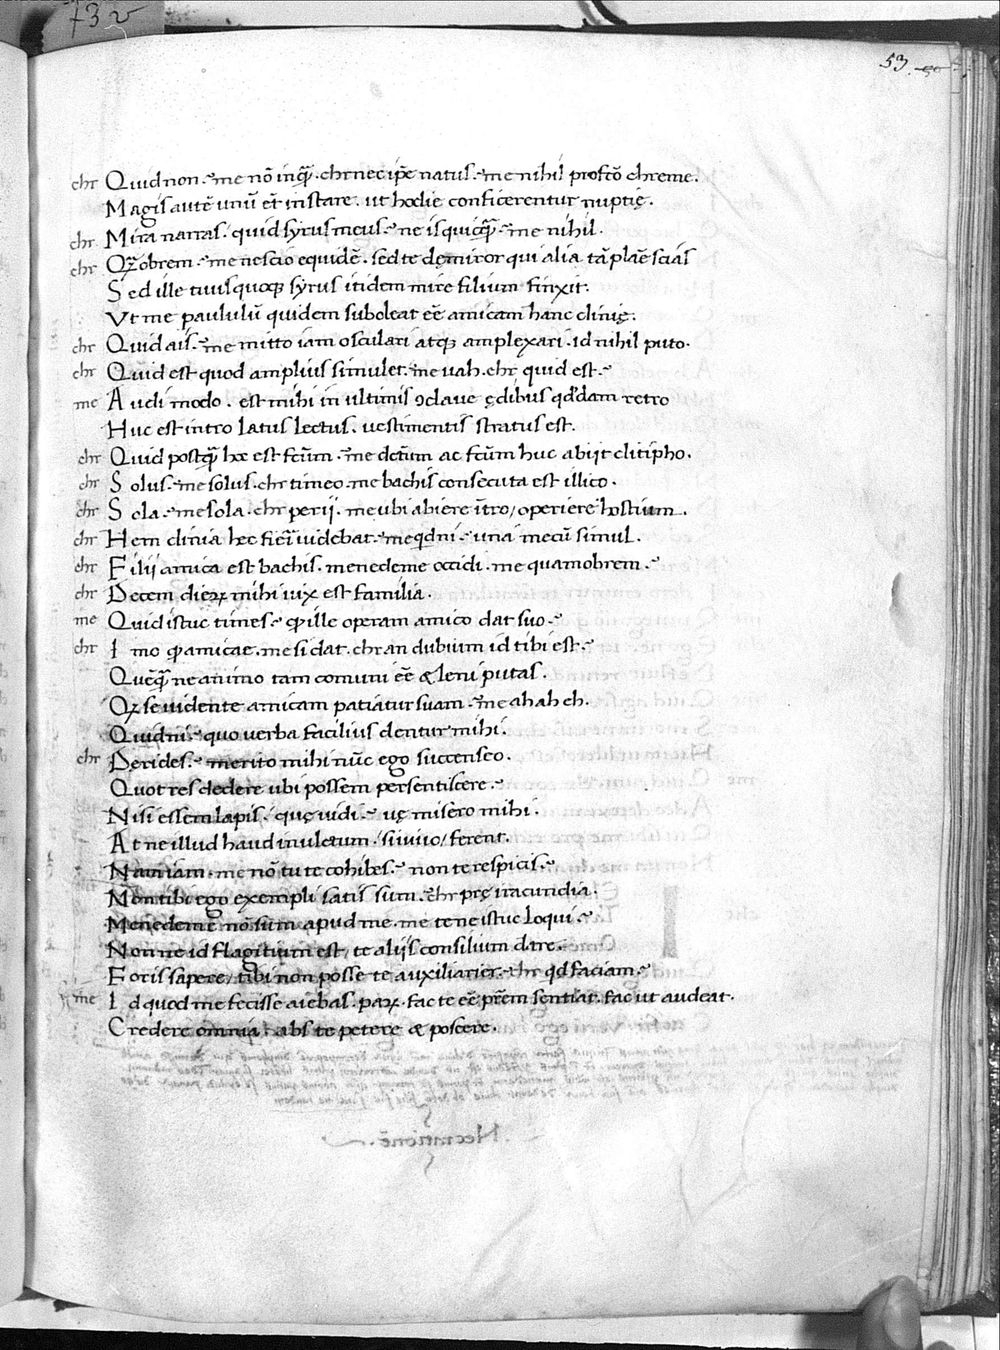 732
53
chr Quid non.~ me nō inquā. chr nec ip̄e natus.~ me nihil profcō chreme.
Magis autē unū ēt instare. ut hodie conficerentur nuptię.
chr Mira narras. quid syrus meus.~ ne is quicq̄ꝫ.~ me nihil.
chr Qꝫobrem.~ me nescio equidē. sed te dęmiror qui alia tā plāe scias
Sed ille tuus quoqꝫ syrus itidem mire filium finxit.
Vt me paululū quidem suboleat eē amicam hanc clinię.
chr Quid ais.~ me mitto iam osculari atqꝫ amplexari. id nihil puto.
chr Quid est quod amplius simulet. me uah. chr quid est.~
me Audi modo. est mihi in ultimis ꝯclaue ędibus qd'dam retro
Huc est intro latus lectus. uestimentis stratus est.
chr Quid postq̄ hoc est fcūm.~ me dctūm ac fcūm huc abijt clitipho.
chr Solus.~ me solus. chr timeo. me bachis consecuta est illico.
chr Sola.~ me sola. chr perij. me ubi abiere ītro/operiere hostium.
chr Hem clinia hęc fieri uidebat.~ me qd̄ni.~ una mecū simul.
chr Filij amica est bachis. menedeme occidi. me quamobrem.~
chr Decem dierꝝ mihi uix est familia.
me Quid istuc times.~ qꝫ ille operam amico dat suo.~
chr Imo qꝫ amicae. me si dat. chr an dubium id tibi est.~
Quēq̄ꝫ ne animo tam comuni eē & leni putas.
Qꝫ se uidente amicam patiatur suam.~ me ah ah eh.
Quidni.~ quo uerba facilius dentur mihi.
chr Dęrides.~ merito mihi nūc ego succenseo.
Quot res dedere ubi possem persentiscere.~
Nisi essem lapis. quę uidi.~ uę misero mihi.
At ne illud haud inulctum/si uiuo/ferent.
Nam iam. me nō tu te cohibes.~ non te respicis.~
Non tibi ego exempli satis sum. chr prę iracundia.
Menedemē nō sum apud me. me te ne istuc loqui.~
Nonne id flagitium est/te alijs consilium dare.~
Foris sapere/tibi non posse te auxiliarier.~ chr qd faciam.~
me Id quod me fecisse aiebas. parꝝ. fac te eē prēm sentiat. fac ut audeat.
Credere omnia. abs te petere & poscere.